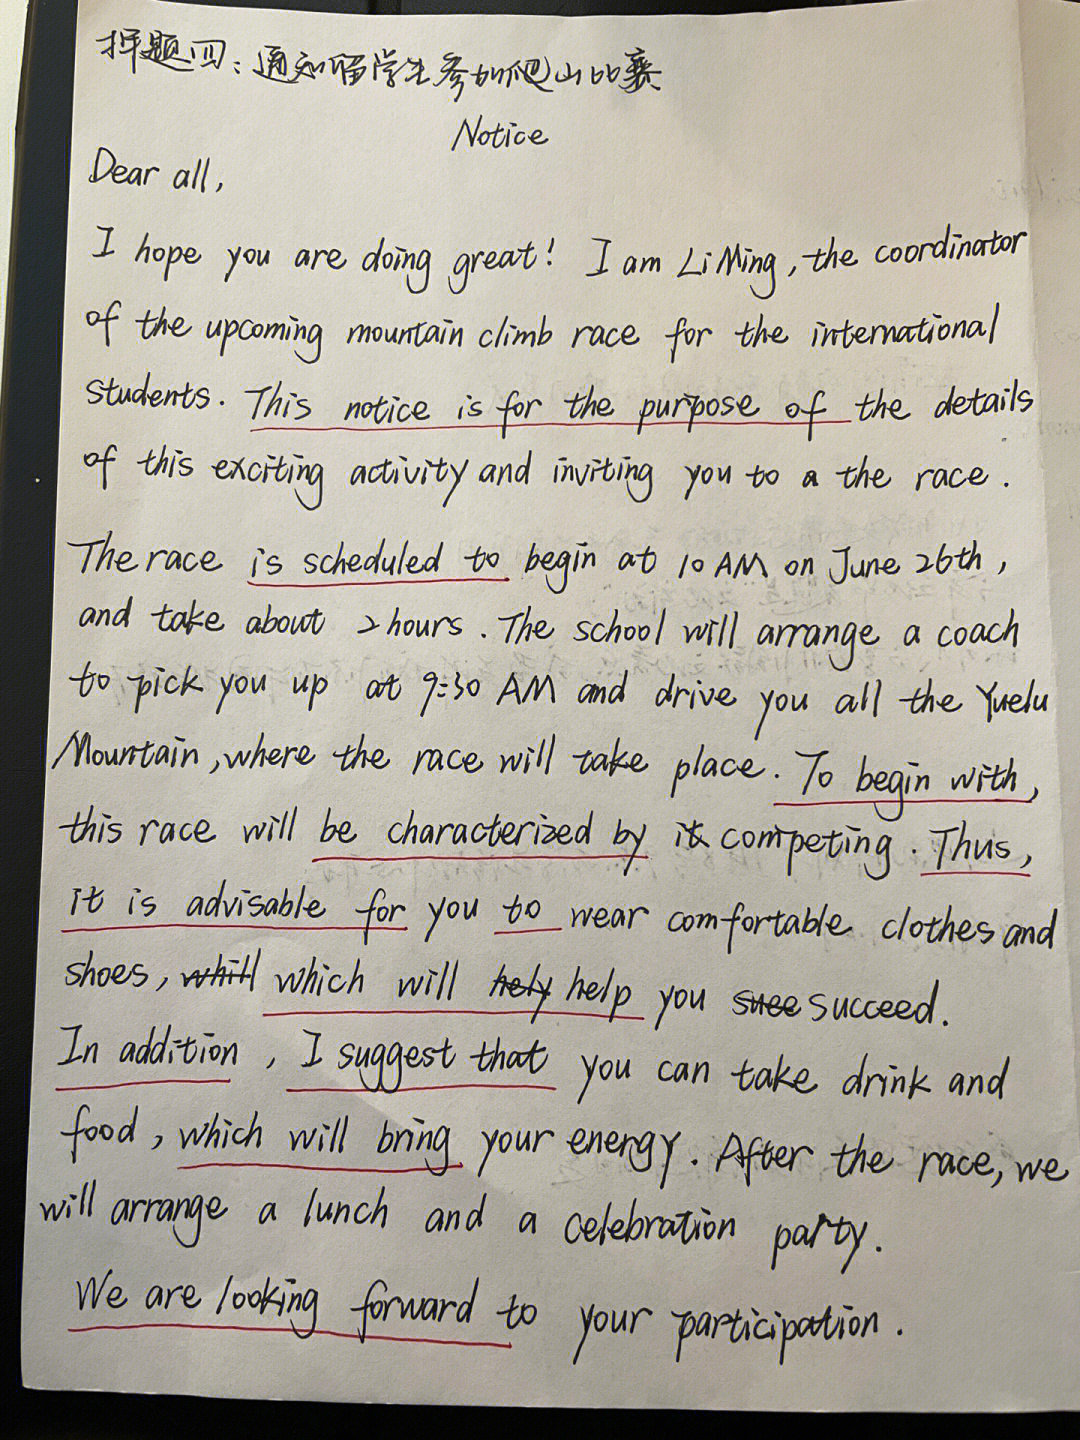 押题四：通知留学生参加爬山比赛
Notice
Dear all,
I hope you are doing great! I am Li Ming, the coordinator
of the upcoming mountain climb race for the international
students. This notice is for the purpose of the details
of this exciting activity and inviting you to a the race.
The race is scheduled to begin at 10 AM on June 26th,
and take about 2 hours. The school will arrange a coach
to pick you up at 9:30 AM and drive you all the Yuelu
Mountain, where the race will take place. To begin with,
this race will be characterized by it competing. Thus,
it is advisable for you to wear comfortable clothes and
shoes, whill which will hely help you suee succeed.
In addition, I suggest that you can take drink and
food, which will bring your energy. After the race, we
will arrange a lunch and a celebration party.
We are looking forward to your participation.